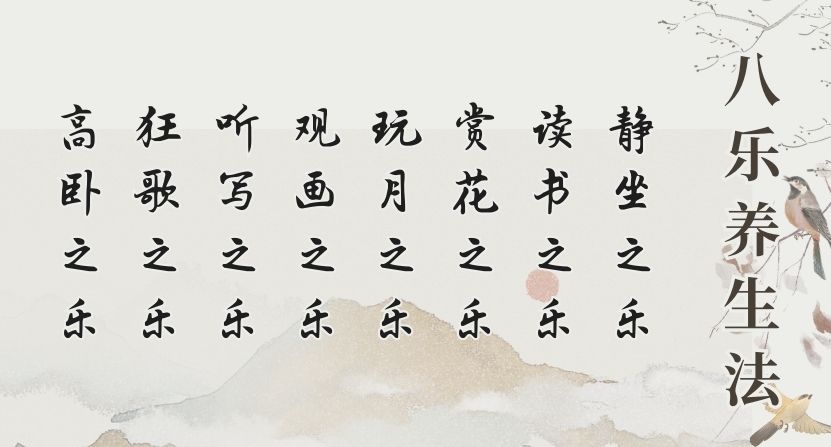 八乐养生法
静坐之乐
读书之乐
赏花之乐
玩月之乐
观画之乐
听写之乐
狂歌之乐
高卧之乐